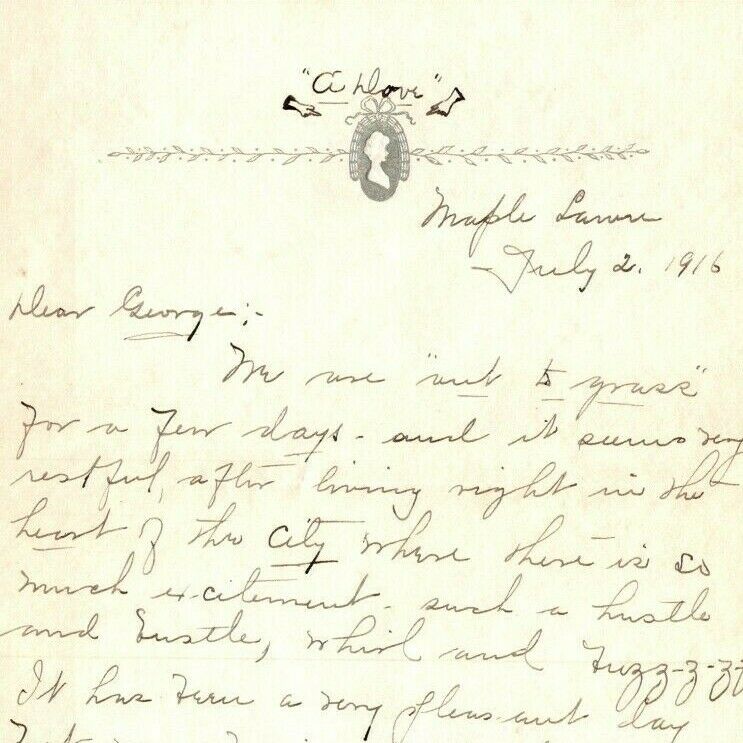 "A Dove"
Maple Lawn
July 2. 1916
Dear George;-
We are "out to grass"
for a few days - and it seems very
restful, after living right in the
heart of the city where there is so
much excitement - such a hustle
and bustle, whirl and fuzz-z-z-z
It has been a very pleasant day